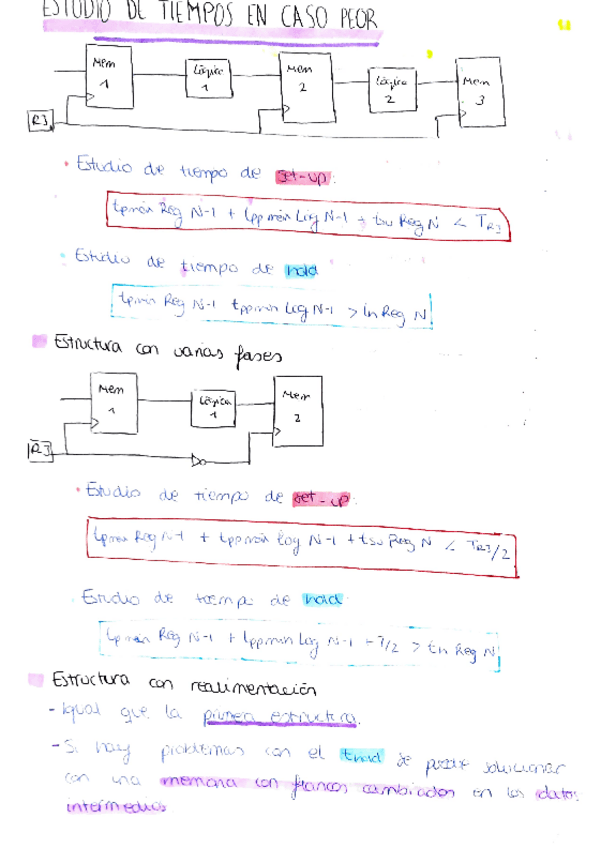 ESTUDIO DE TIEMPOS EN CASO PEOR
Mem 1
Lógica 1
Mem 2
Lógica 2
Mem 3
RJ
• Estudio de tiempo de set-up:
tpmáx Reg N-1 + tppmáx Log N-1 + tsu Reg N < TRJ
• Estudio de tiempo de hold
tpmin Reg N-1 tppmin Log N-1 > th Reg N
Estructura con varias fases
Mem 1
Lógica 1
Mem 2
RJ
• Estudio de tiempo de set-up:
tpmax Reg N-1 + tppmáx Log N-1 + tsu Reg N < TRJ/2
Estudio de tiempo de hold
Reg N-1 + tppmin Log N-1 + T/2 > th Reg N
Estructura con realimentación
- Igual que la primera estructura.
- Si hay problemas con el thold se puede solucionar
con una memoria con flancos cambiados en los datos
intermedios